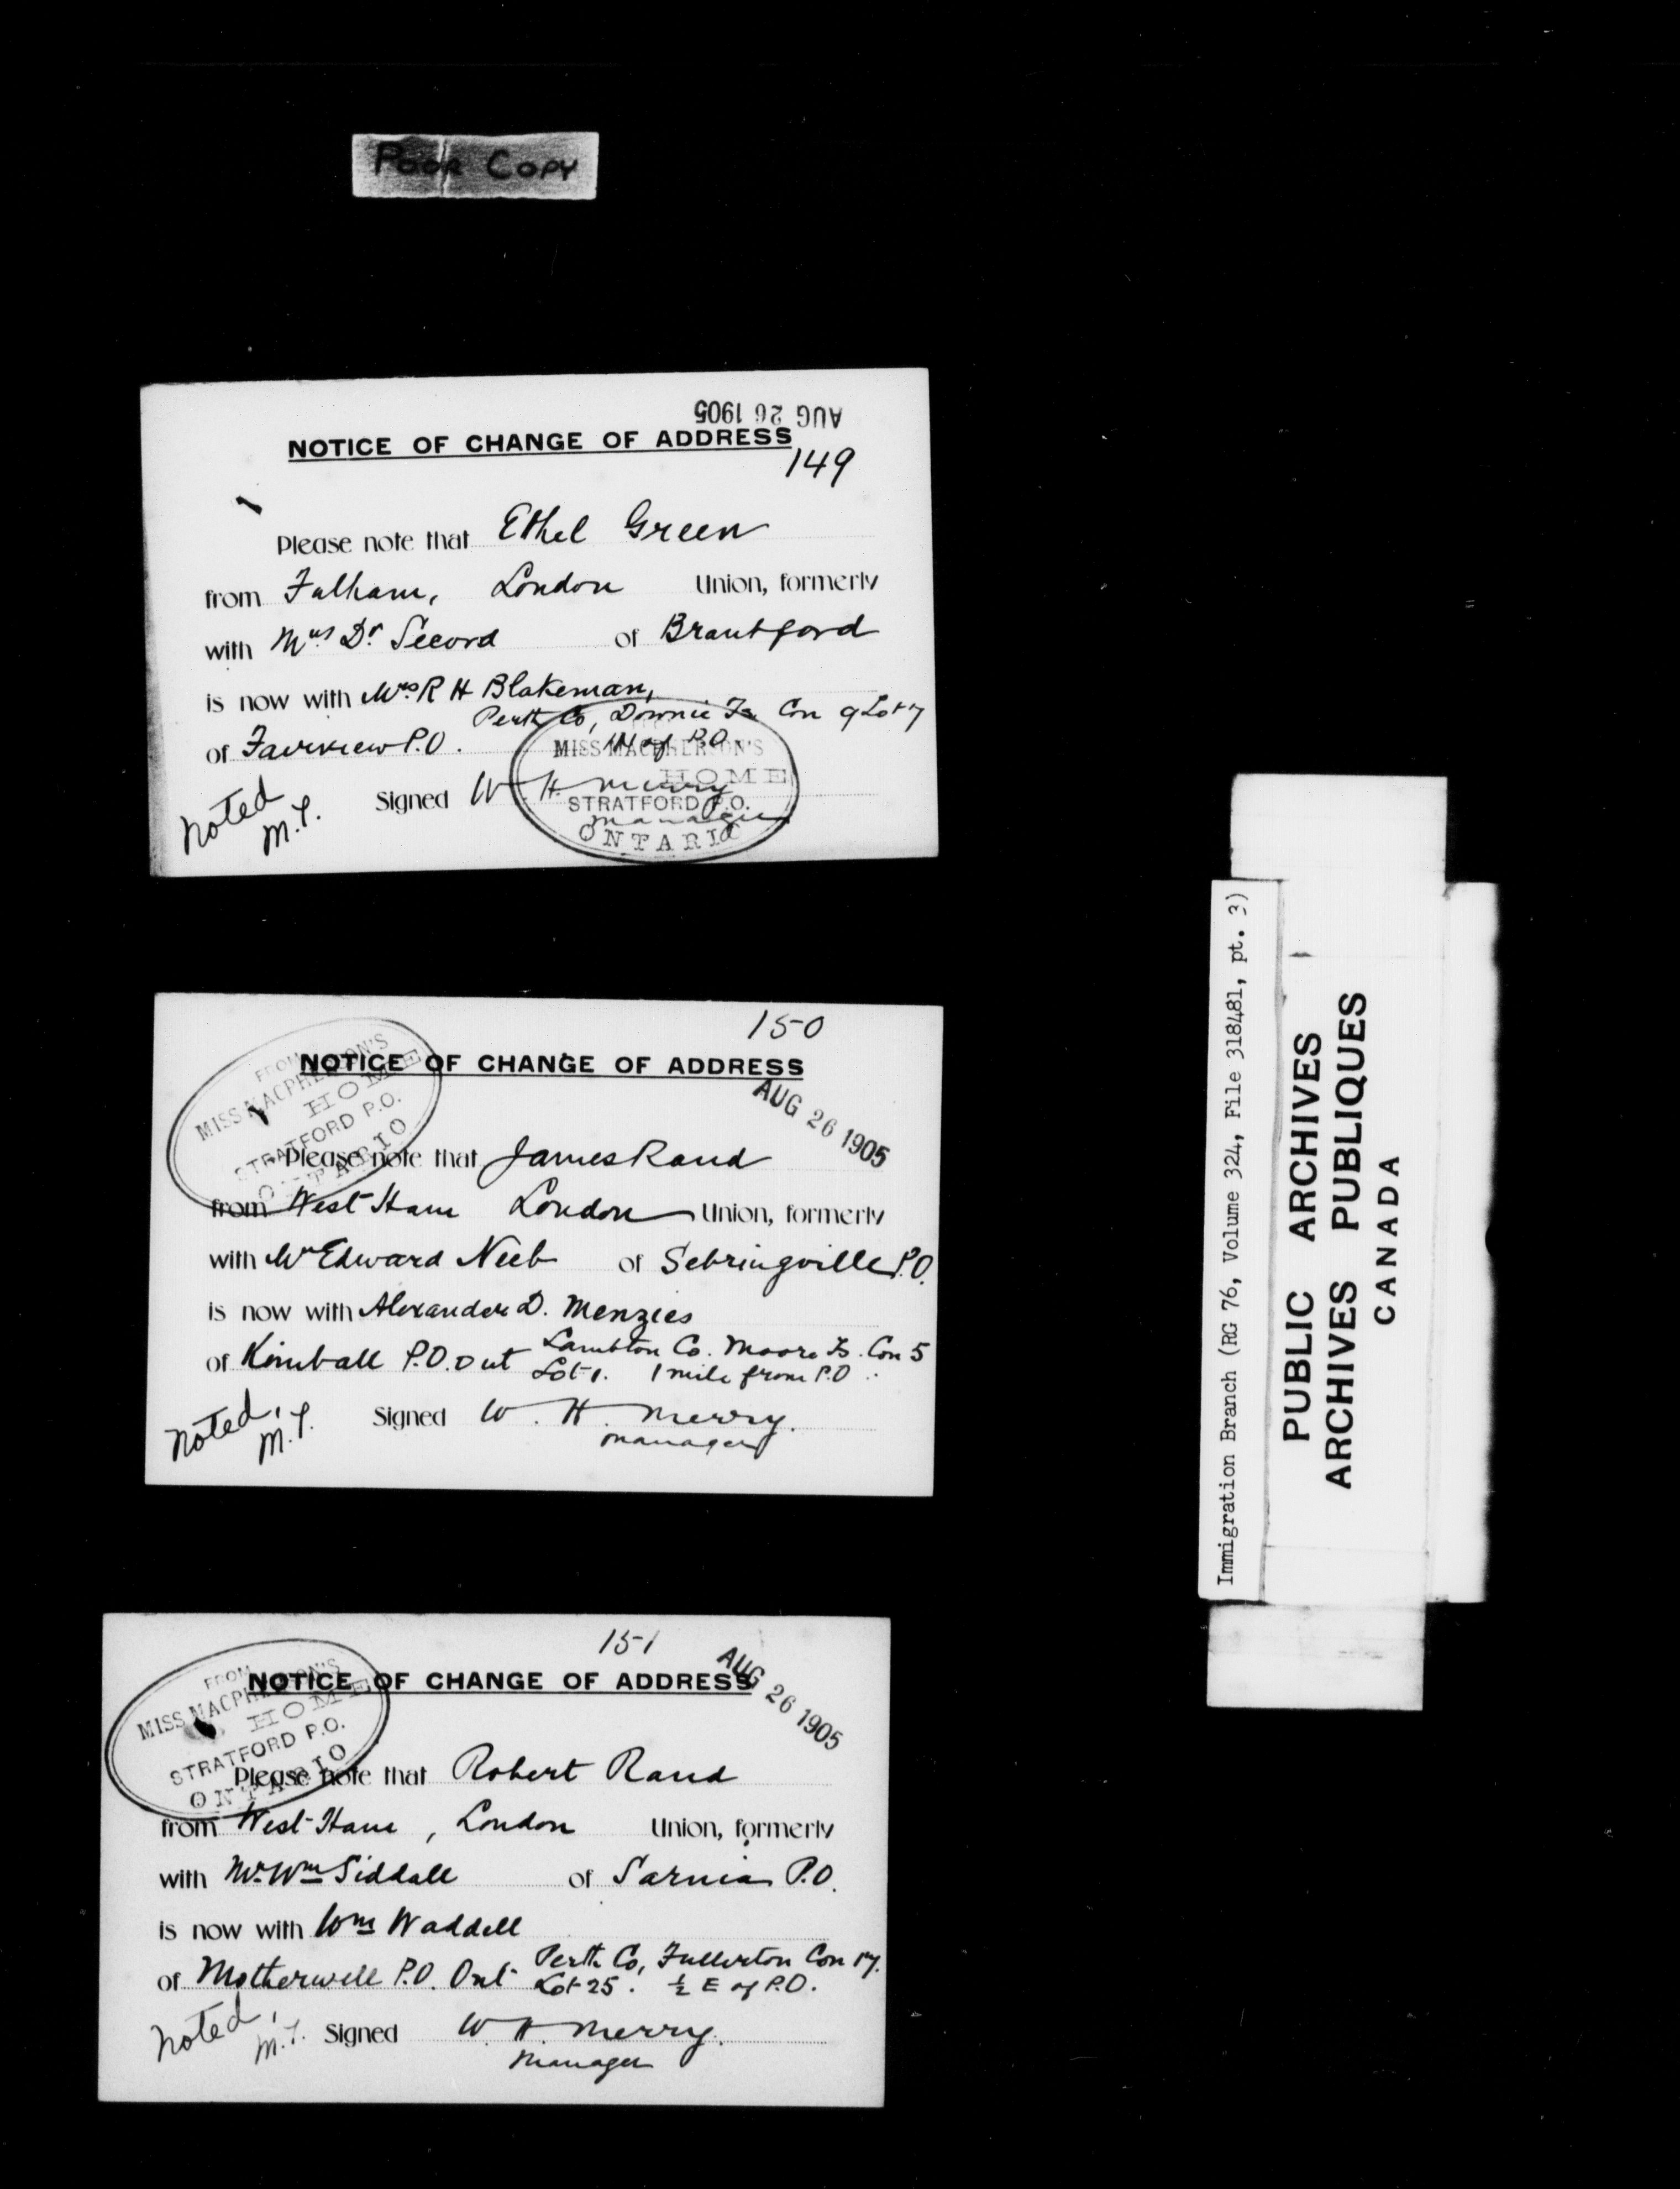 Poor Copy
AUG 26 1905
NOTICE OF CHANGE OF ADDRESS
149
Please note that Ethel Green
from Fulham, London Union, formerly
with Mrs Dr Secord of Brantford
is now with Mrs R H Blakeman,
Perth Co, Downie Ts Con 9 Lot 17
of Fairview P.O. of P.O
MISS MACPHERSON'S
HOME
STRATFORD P.O.
ONTARIO
Signed W H Merry
manager
Noted
M.T.
150
NOTICE OF CHANGE OF ADDRESS
AUG 26 1905
FROM
MISS MACPHERSON'S
HOME
STRATFORD P.O.
ONTARIO
Please note that James Rand
from West Ham London Union, formerly
with Mr Edward Neeb of Sebringville P.O.
is now with Alexander D. Menzies
of Kimball P.O. Ont Lambton Co. Moore Ts. Con 5
Lot 1. 1 mile from P.O.
Signed W. H. Merry.
manager
Noted,
M.T.
151
AUG 26 1905
NOTICE OF CHANGE OF ADDRESS
FROM
MISS MACPHERSON'S
HOME
STRATFORD P.O.
ONTARIO
Please note that Robert Rand
from West Ham, London Union, formerly
with Mr Wm Siddall of Sarnia P.O.
is now with Wm Waddell
of Motherwell P.O. Ont Perth Co, Fullerton Con 17.
Lot 25. ½ E of P.O.
Noted,
M.T. Signed W. H. Merry.
Manager
Immigration Branch (RG 76, Volume 324, File 318481, pt. 3)
PUBLIC ARCHIVES
ARCHIVES PUBLIQUES
CANADA